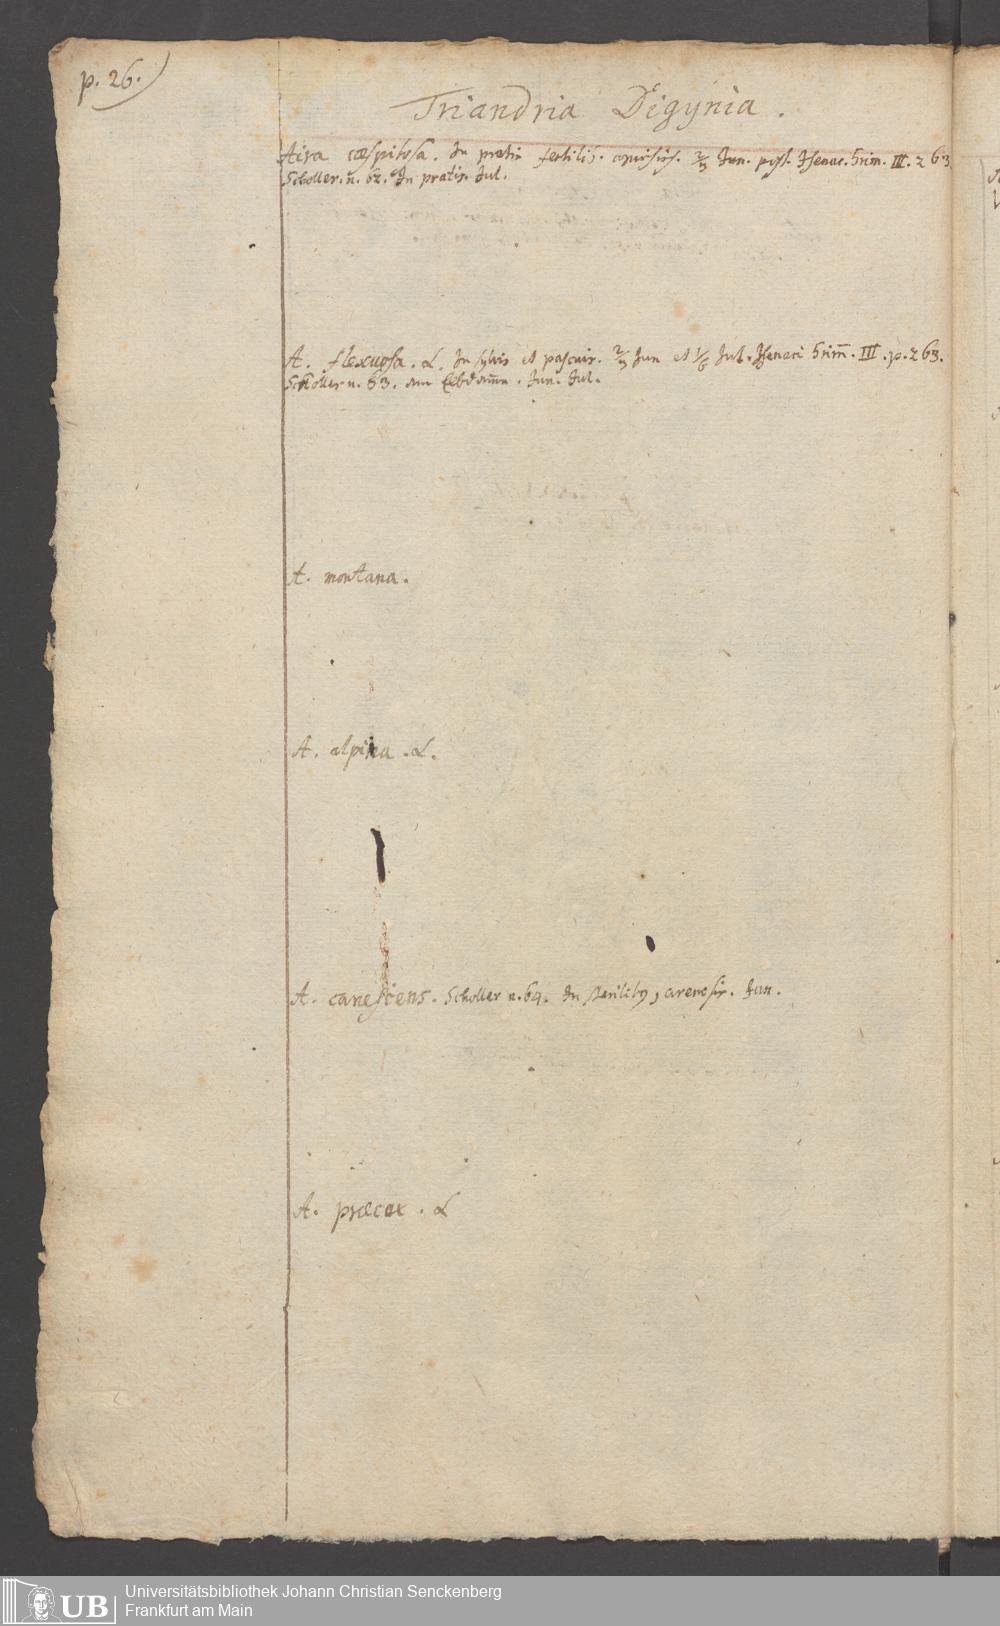 p. 26.)
Triandria Digynia.
Aira cæspitosa. In pratis fertilis. 2/3 Jun. Jhenac. Srim. III. 263.
Scholler. n. 62. In pratis. Jul.
A. flexuosa. L. In sylvis et pascuis. 2/3 Jun et 1/6 Jul. Jhenaci Srim̄. III. p. 263.
Scholler n. 63. Jun. Jul.
A. montana.
A. alpina. L.
A. canescens. Scholler n. 64. In sterilib9, arenosis. Jun.
A. præcox. L
UB
Universitätsbibliothek Johann Christian Senckenberg
Frankfurt am Main